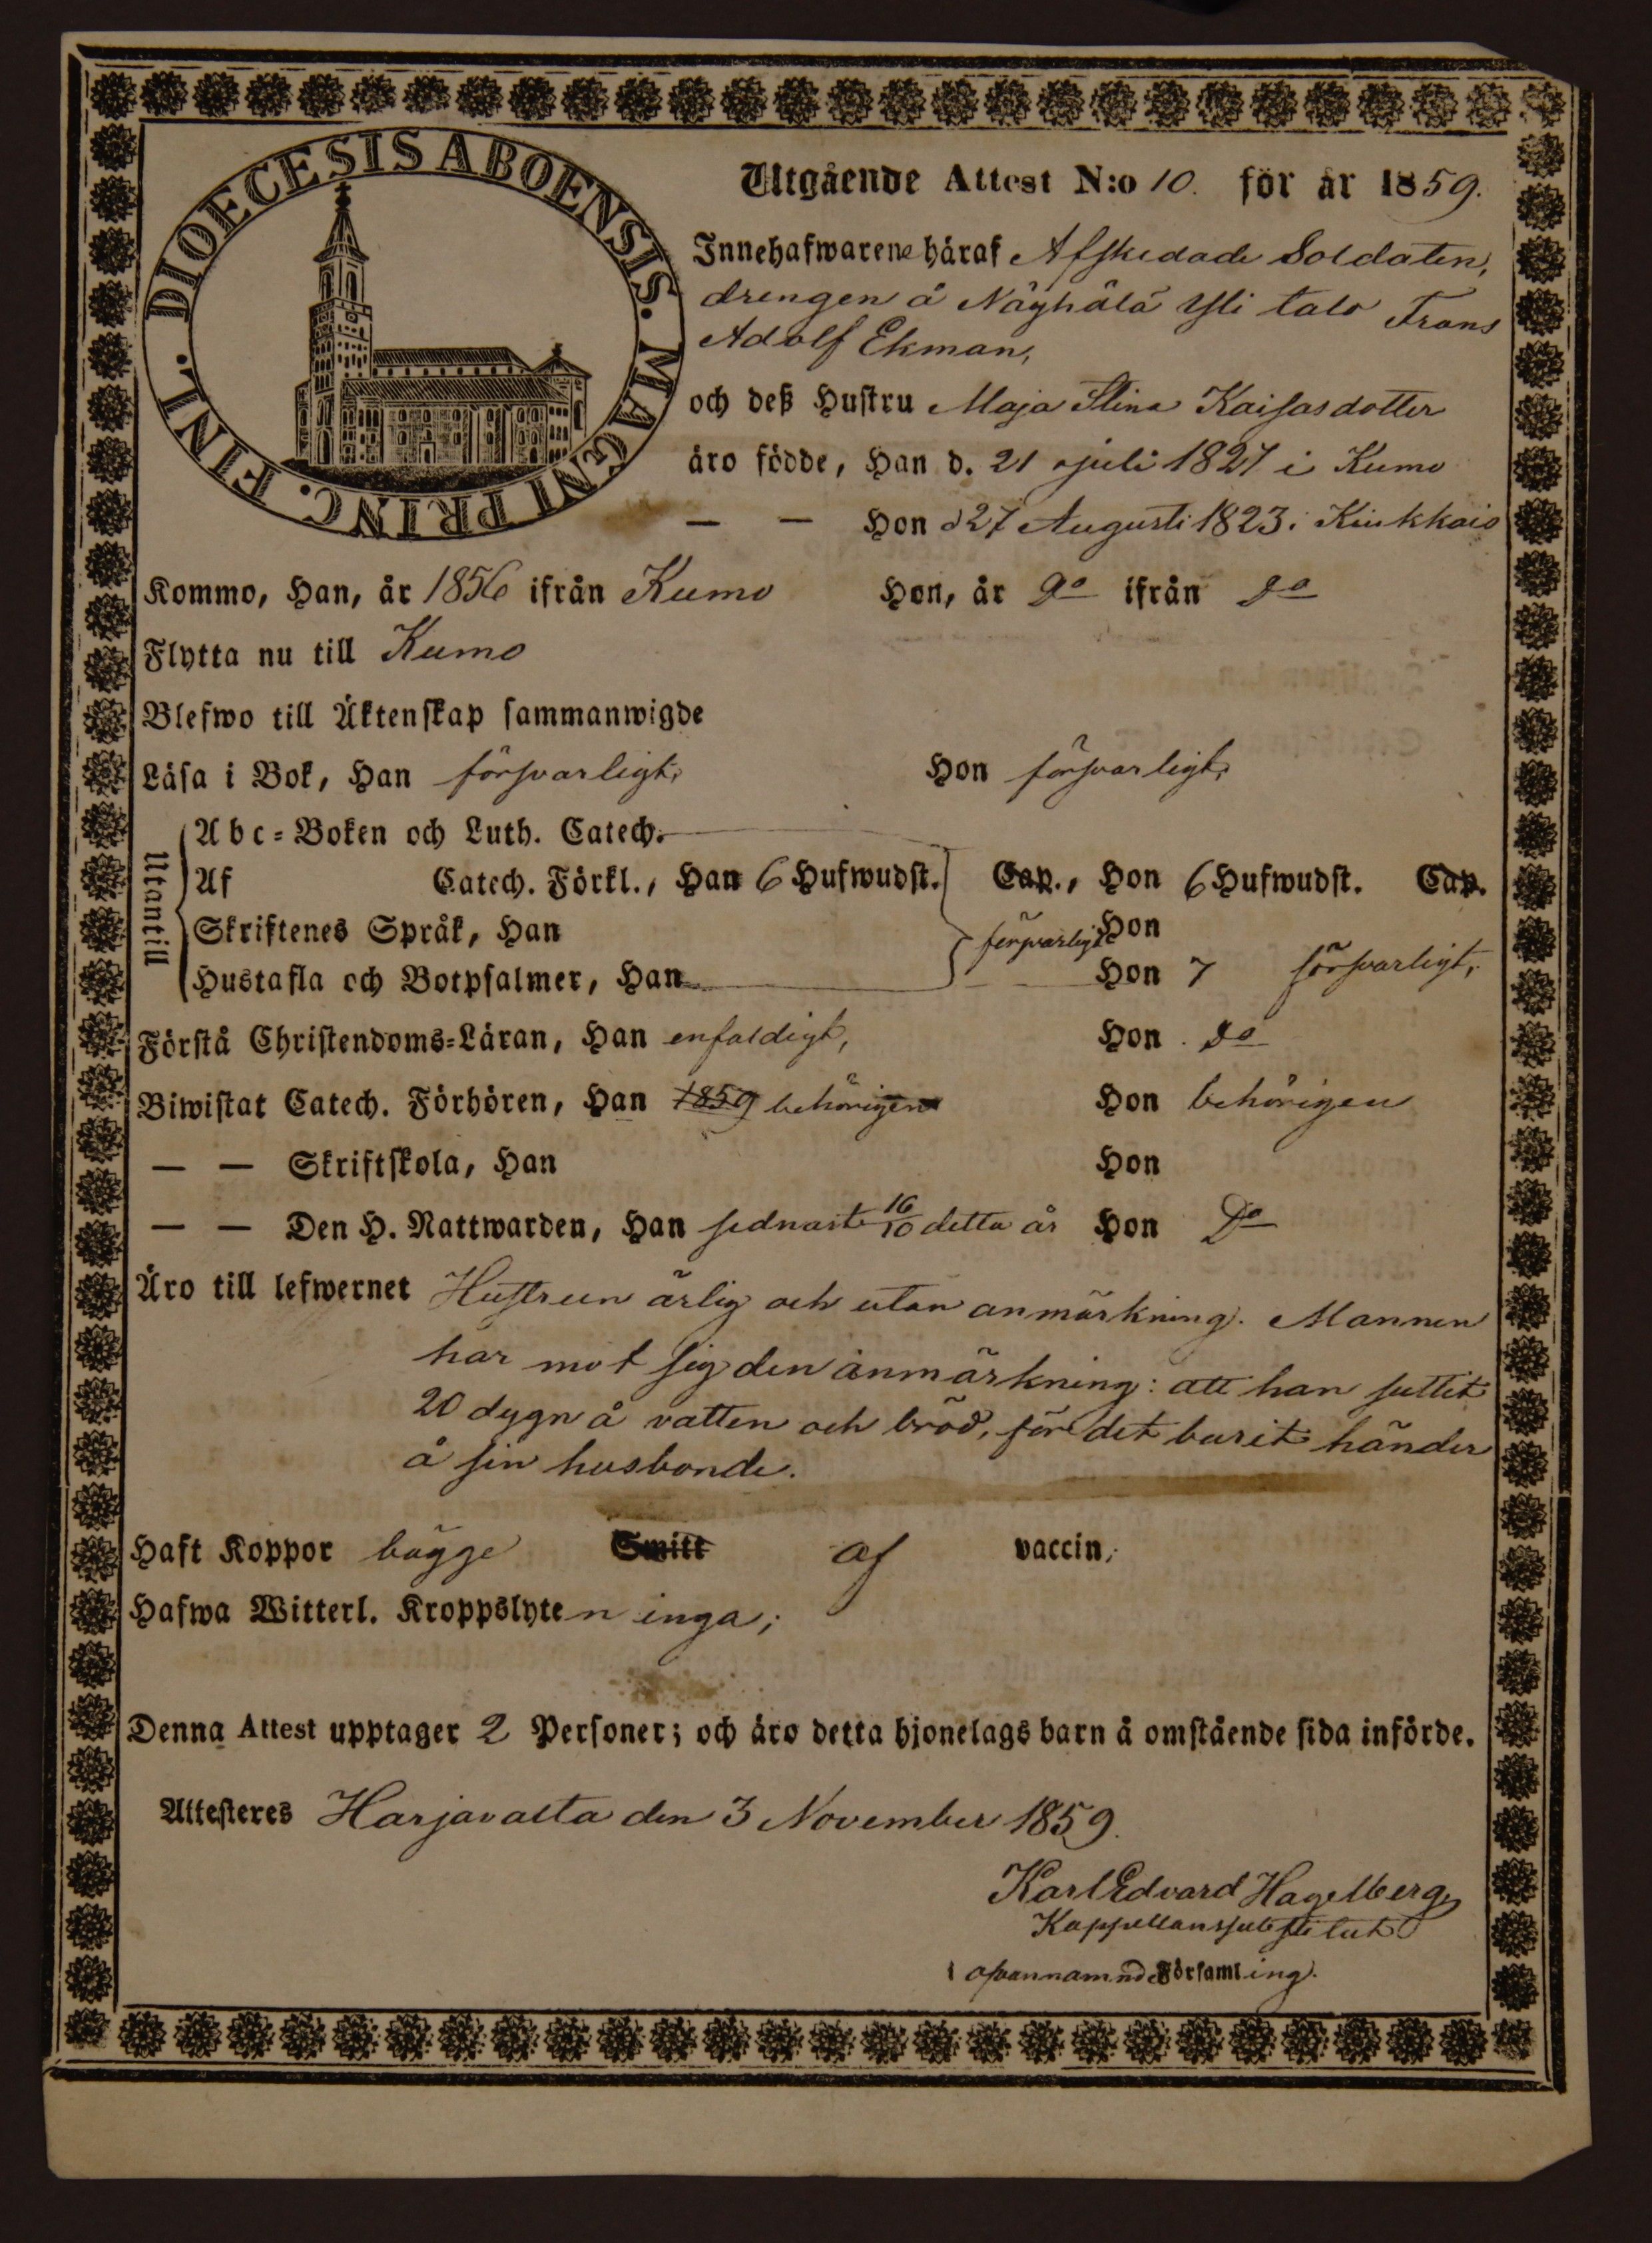 DIOECESIS ABOENSIS. MAGNI PRINC. FINL.
Utgående Attest N:o 10. för år 1859.
Innehafwarene häraf Afskedade Soldaten,
drengen å Näyhälä Yli talo Frans
Adolf Ekman,
och deß Hustru Maja Stina Kaisasdotter
äro födde, Han d. 21 juli 1827 i Kumo
— — Hon d 27 Augusti 1823 i Kiukkais
Kommo, Han, år 1856 ifrån Kumo Hon, år do ifrån do
Flytta nu till Kumo
Blefwo till Äktenskap sammanwigde
Läsa i Bok, Han försvarligt, Hon försvarligt,
Utantill
Abc-Boken och Luth. Catech.
Af Catech. Förkl., Han 6 Hufwudst. Cap., Hon 6 Hufwudst. Cap.
Skriftenes Språk, Han försvarligt Hon
Hustafla och Botpsalmer, Han Hon 7 försvarligt,
Förstå Christendoms-Läran, Han enfaldigt, Hon do
Biwistat Catech. Förhören, Han 1859 behörigen Hon behörigen
— — Skriftskola, Han Hon
— — Den H. Nattwarden, Han sednast 16/10 detta år Hon Do
Äro till lefwernet Hustrun ärlig och utan anmärkning. Mannen
har mot sig den anmärkning: att han suttit
20 dygn å vatten och bröd, för det burit händer
å sin husbonde.
Haft Koppor bägge Smitt af vaccin,
Hafwa Witterl. Kroppslyten inga;
Denna Attest upptager 2 Personer; och äro detta hjonelags barn å omstående sida införde.
Attesteres Harjavalta den 3 November 1859.
Karl Edvard Hagelberg
Kappellanssubstitut
i ofvannamnd Församling.